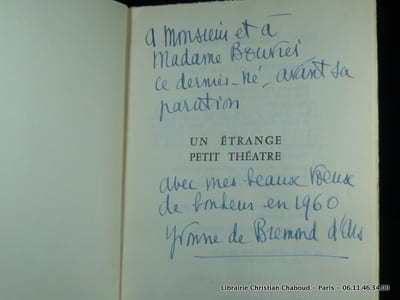 A Monsieur et à
Madame Bouvier
ce dernier-né, avant sa
parution
UN ÉTRANGE
PETIT THÉATRE
avec mes beaux vœux
de bonheur en 1960
Yvonne de Bremond d'Ars
Librairie Christian Chaboud - Paris - 06.11.46.34.00